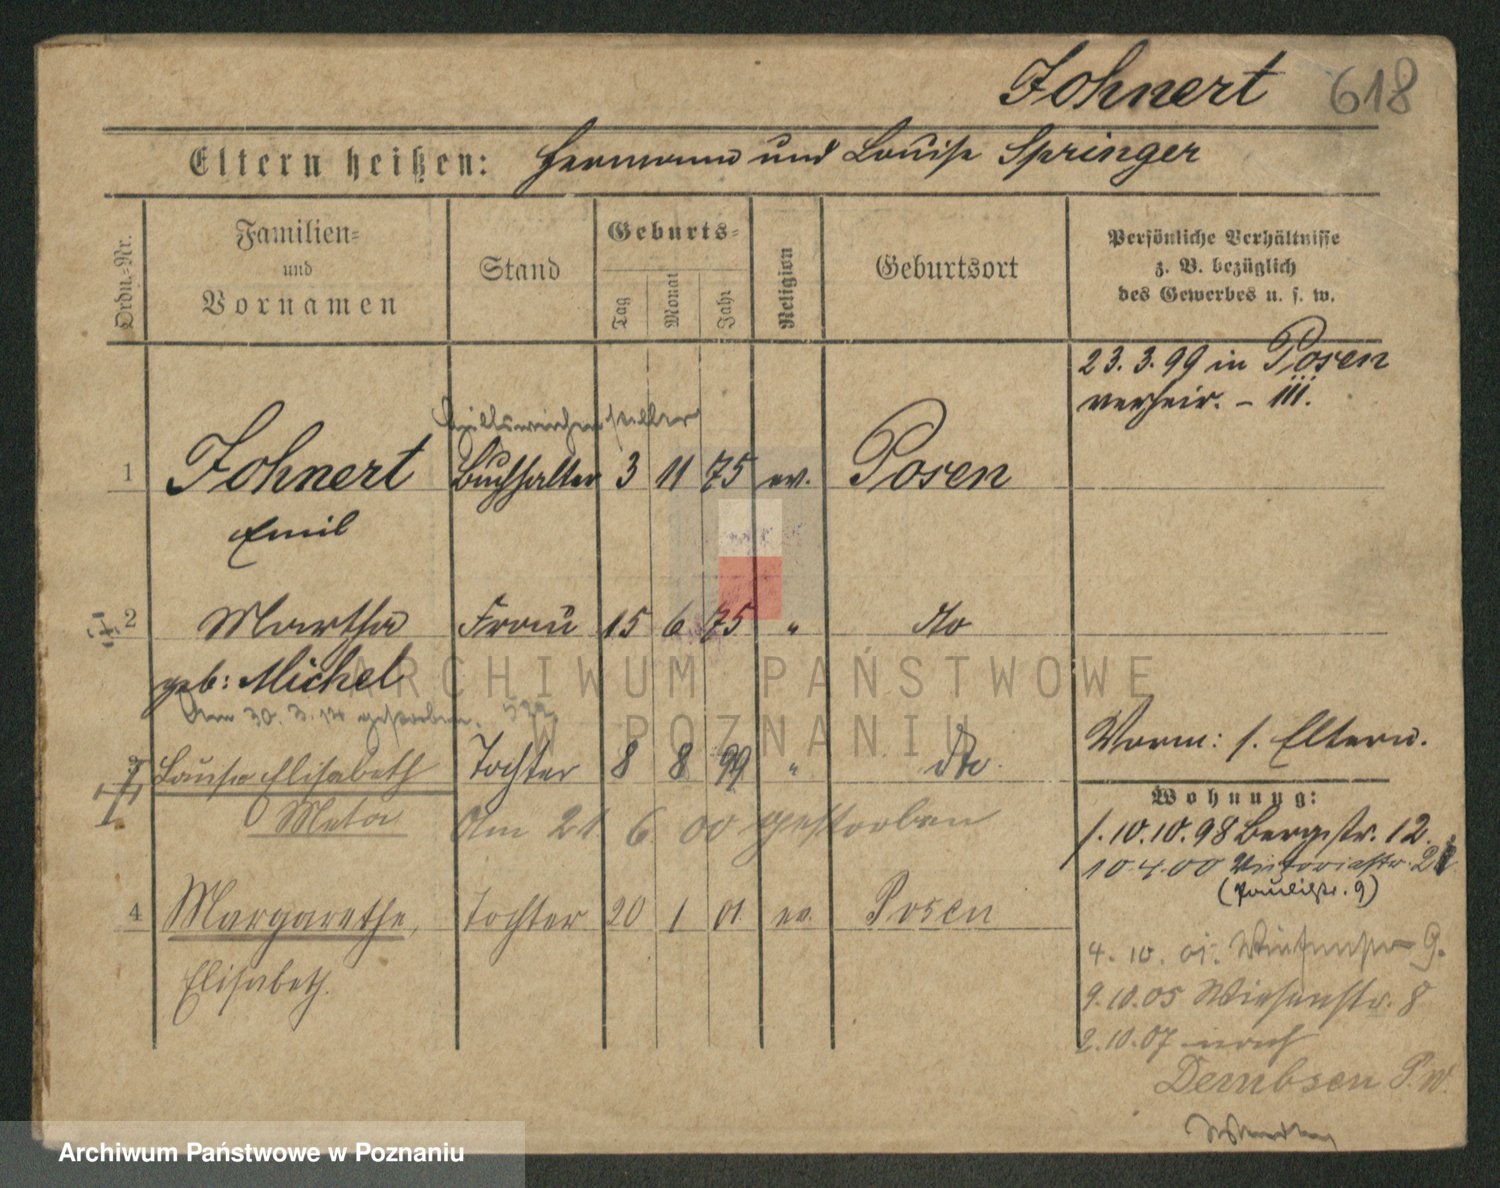 Fohnert 618
Eltern heißen: Hermann und Louise Springer
Ordn.-Nr.
Familien-
und
Vornamen
Stand
Geburts-
Tag
Monat
Jahr
Religion
Geburtsort
Persönliche Verhältnisse
z. B. bezüglich
des Gewerbes u. s. w.
23. 3. 99 in Posen
verheir. - III.
1 Fohnert Buchhalter 3 11 75 ev. Posen
Emil
2 Martha Frau 15 6 75 " dto
geb: Michel
Am 30. 3. gestorben.
Vorm: s. Eltern.
3 Louise Elisabeth Tochter 8 8 99 " dto.
Meta Am 21 6 00 gestorben
Wohnung:
10.10.98 Bergstr. 12.
10.4.00 Victoriastr.
(Paulistr. 9)
4 Margarethe, Tochter 20 1 01. ev. Posen
Elisabeth.
4. 10. 01. 9.
9.10.05 Wiesenstr. 8
2.10.07 nach
Dembsen P.W.
ARCHIWUM PAŃSTWOWE
W POZNANIU
Archiwum Państwowe w Poznaniu